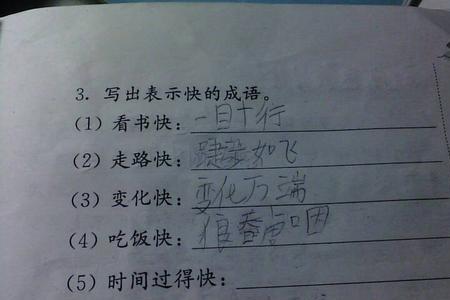 3. 写出表示快的成语。
(1) 看书快: 一目十行
(2) 走路快: 健步如飞
(3) 变化快: 变化万端
(4) 吃饭快: 狼吞虎咽
(5) 时间过得快: